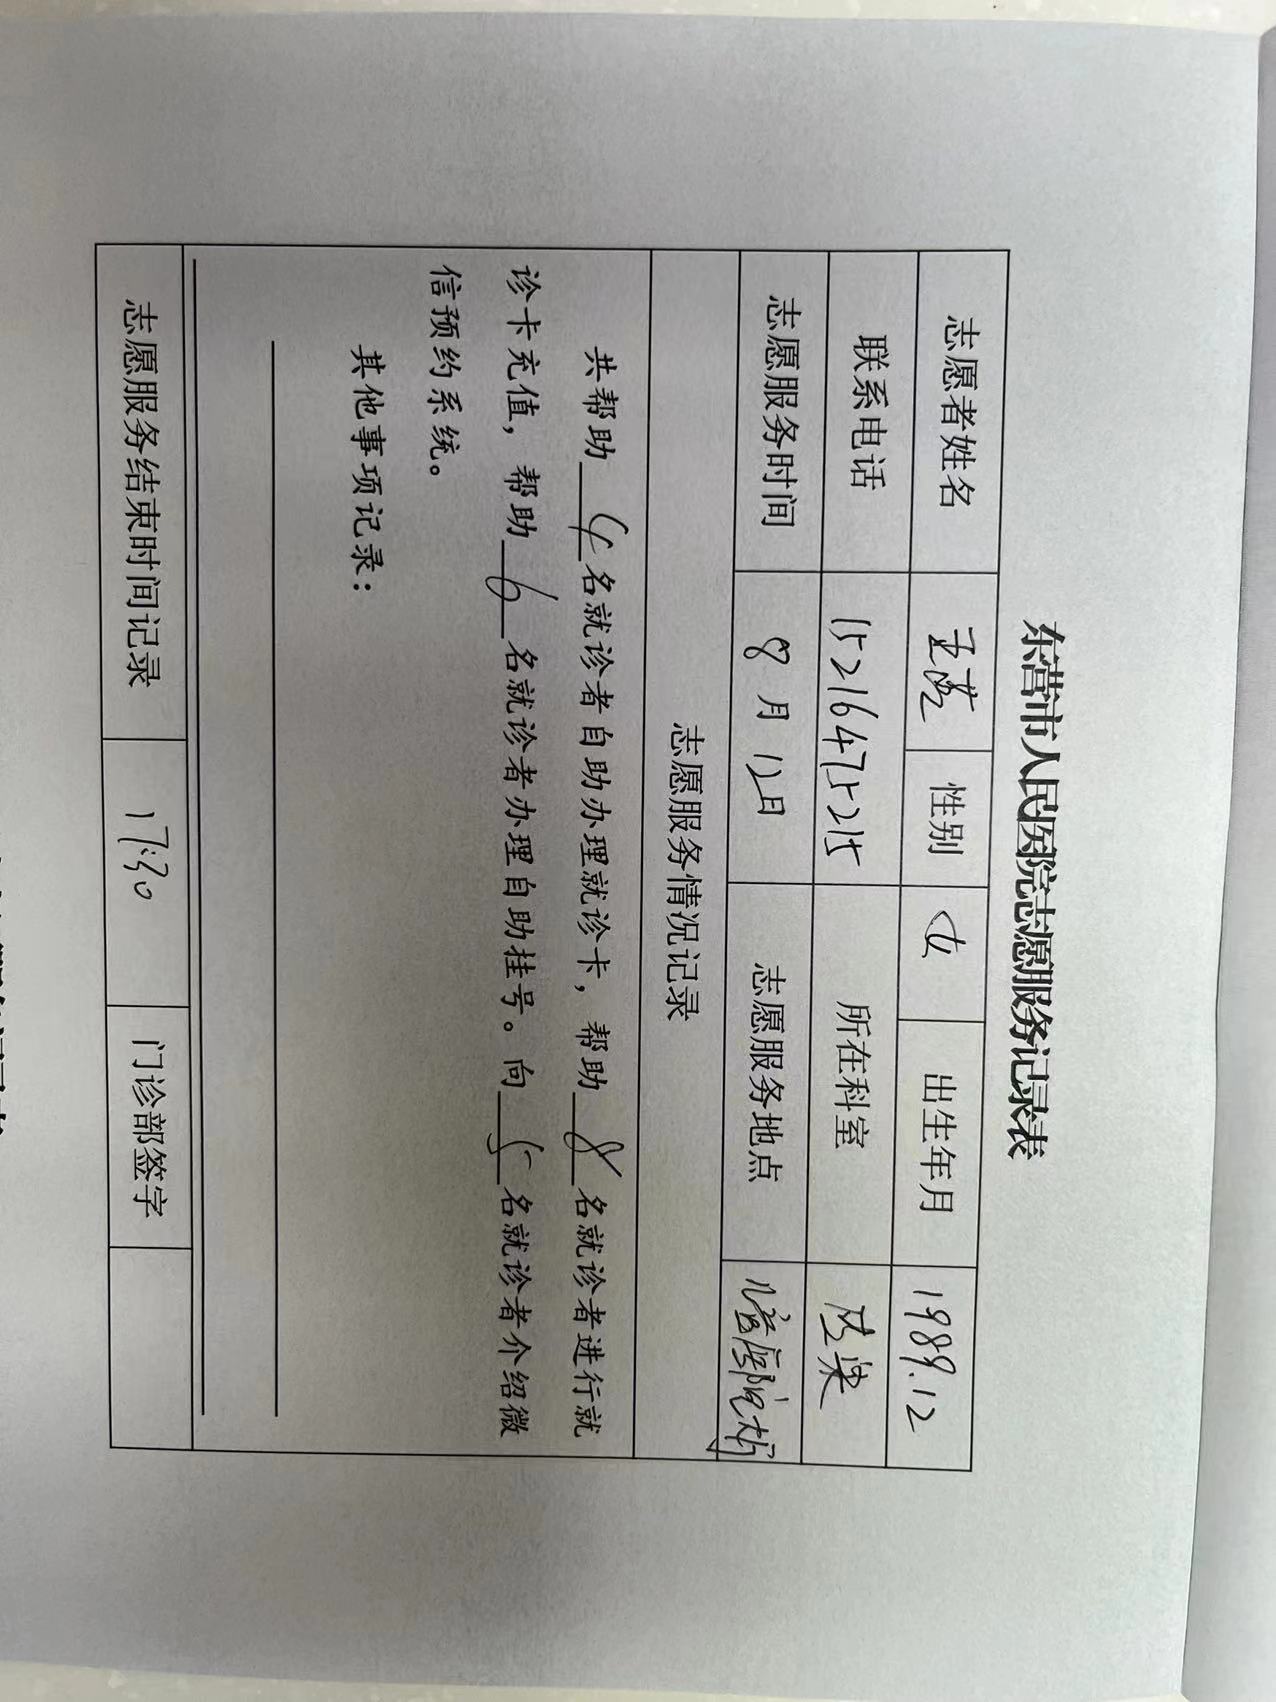 东营市人民医院志愿服务记录表
志愿者姓名 王芸 性别 女 出生年月 1989.12
联系电话 15216475215 所在科室
志愿服务时间 8月12日 志愿服务地点
志愿服务情况记录
共帮助4名就诊者自助办理就诊卡，帮助8名就诊者进行就
诊卡充值，帮助6名就诊者办理自助挂号。向5名就诊者介绍微
信预约系统。
其他事项记录：
志愿服务结束时间记录 17:30 门诊部签字